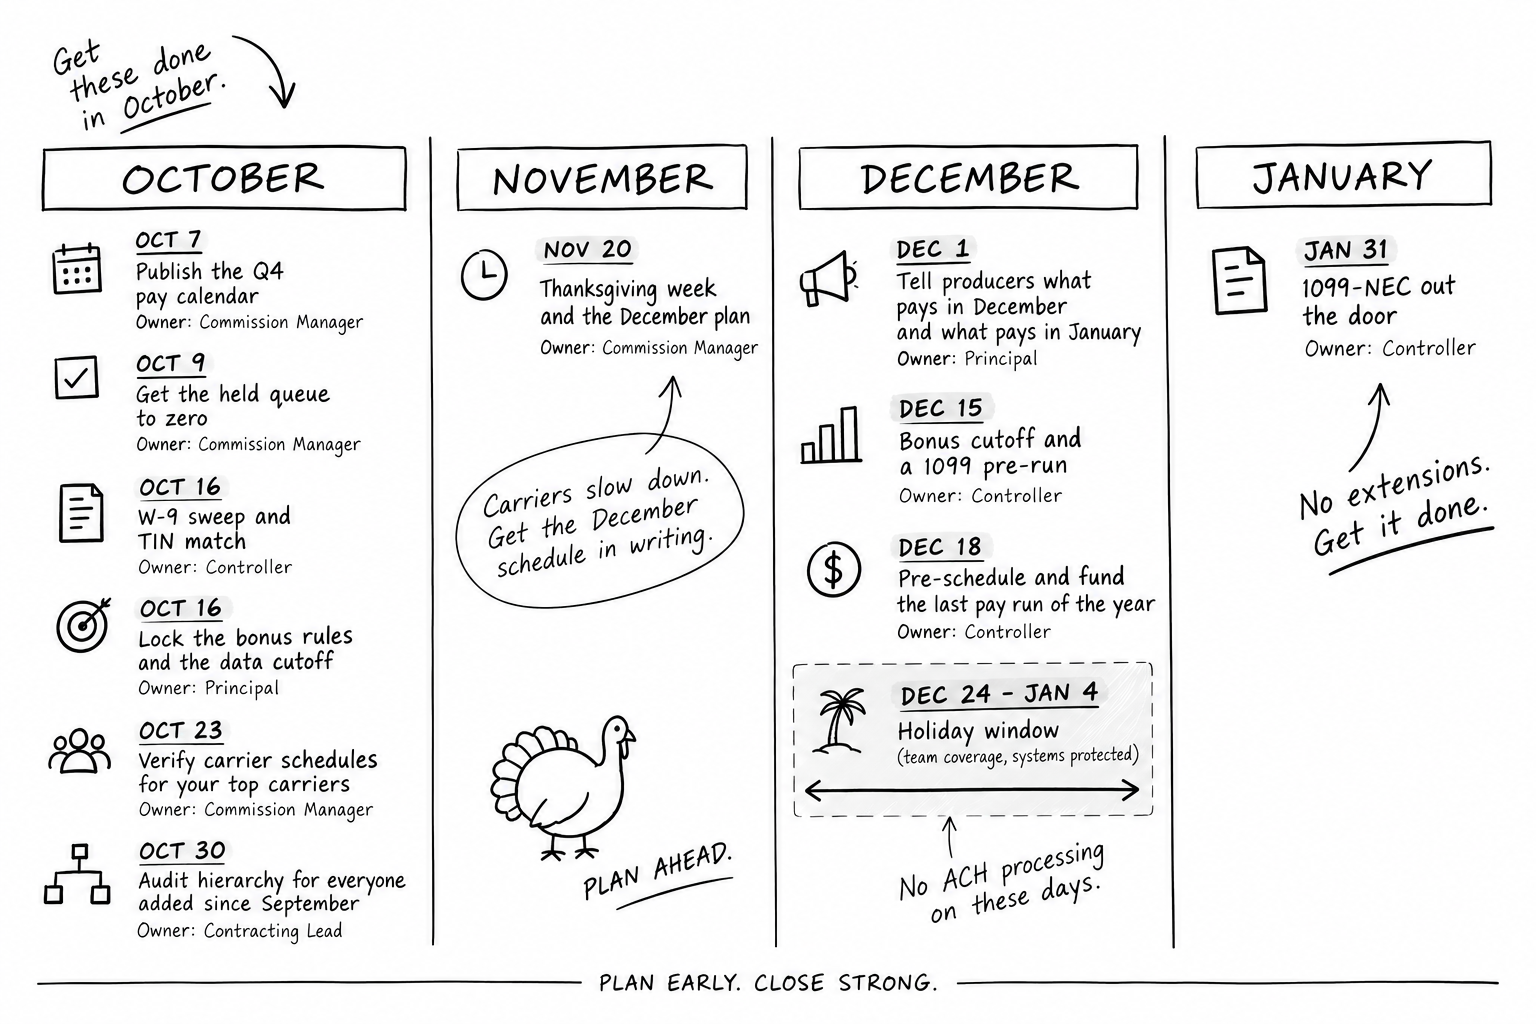 Get
these done
in October.
OCTOBER
OCT 7
Publish the Q4
pay calendar
Owner: Commission Manager
OCT 9
Get the held queue
to zero
Owner: Commission Manager
OCT 16
W-9 sweep and
TIN match
Owner: Controller
OCT 16
Lock the bonus rules
and the data cutoff
Owner: Principal
OCT 23
Verify carrier schedules
for your top carriers
Owner: Commission Manager
OCT 30
Audit hierarchy for everyone
added since September
Owner: Contracting Lead
NOVEMBER
NOV 20
Thanksgiving week
and the December plan
Owner: Commission Manager
Carriers slow down.
Get the December
schedule in writing.
PLAN AHEAD.
DECEMBER
DEC 1
Tell producers what
pays in December
and what pays in January
Owner: Principal
DEC 15
Bonus cutoff and
a 1099 pre-run
Owner: Controller
DEC 18
Pre-schedule and fund
the last pay run of the year
Owner: Controller
DEC 24 - JAN 4
Holiday window
(team coverage, systems protected)
No ACH processing
on these days.
JANUARY
JAN 31
1099-NEC out
the door
Owner: Controller
No extensions.
Get it done.
PLAN EARLY. CLOSE STRONG.